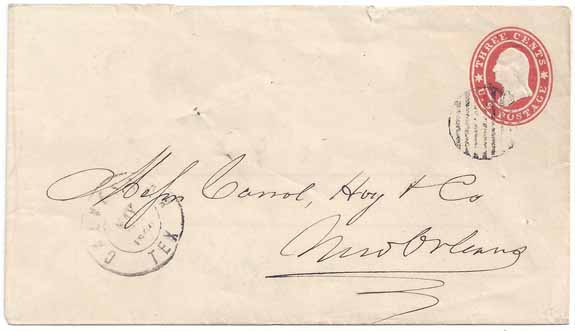 THREE CENTS
U.S. POSTAGE
Messrs Carrol, Hoy & Co
New Orleans
TEX